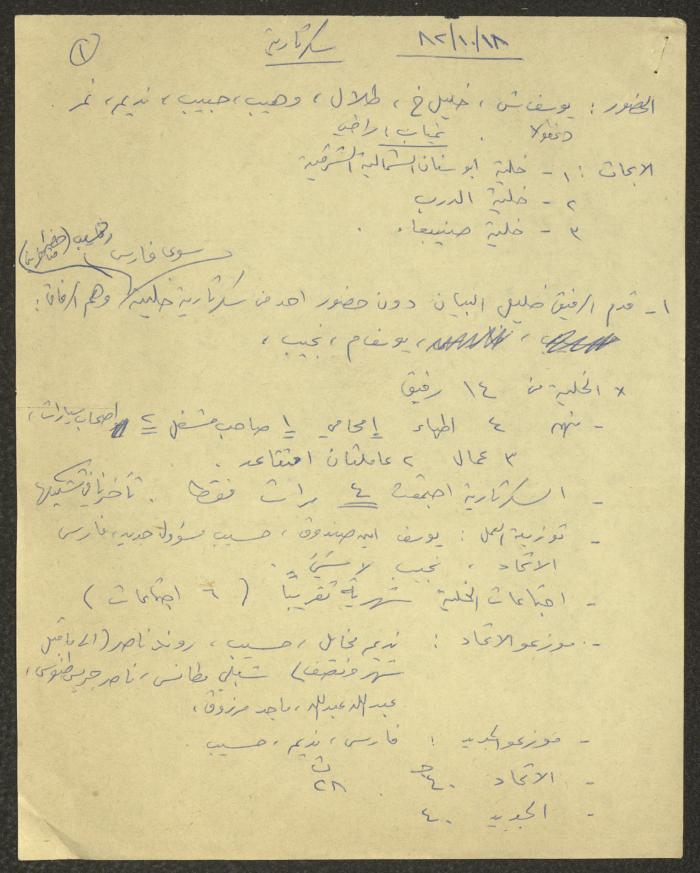 ①
سكرتارية
٨٢/١٠/١٨
الحضور : يوسف ش ، خليل خ ، طلال ، وهيب ، حبيب ، نديم ، نمر
غياب : راضي
الابحاث : ١ - خلية ابو سنان الشمالية الشرقية
٢ - خلية الدرب
٣ - خلية
سوى فارس
١ - قدم الرفيق خليل البيان دون حضور احد من سكرتارية خلية وهم الرفاق :
يوسف م ، نجيب ،
* الخلية من ١٤ رفيق
- منهم ٤ اطباء ١ محامي ١ صاحب مشغل ٢ اصحاب سيارات ،
٣ عمال ٢ عاملتان ١ متقاعد .
- السكرتارية اجتمعت ٤ مرات فقط . تأخرنا في تشكيلها
- توزيع العمل : يوسف امين صندوق ، حسيب مسؤول جديد ، فارس
الاتحاد ، نجيب لا شيء .
- اجتماعات الخلية شهرية تقريباً ( ٦ اجتماعات )
- موزعو الاتحاد : نديم مخايل ، حسيب ، روند ناصر ( الى ما قبل
شهر ونصف ) شبلي بطانس ، ناصر جريس ،
عبد الله عبد الله ، ماجد مرزوق ،
- موزعو الجديد : فارس ، نديم ، حسيب .
- الاتحاد ٤٠ ج ٢٨ ث
- الجديد ٤٠